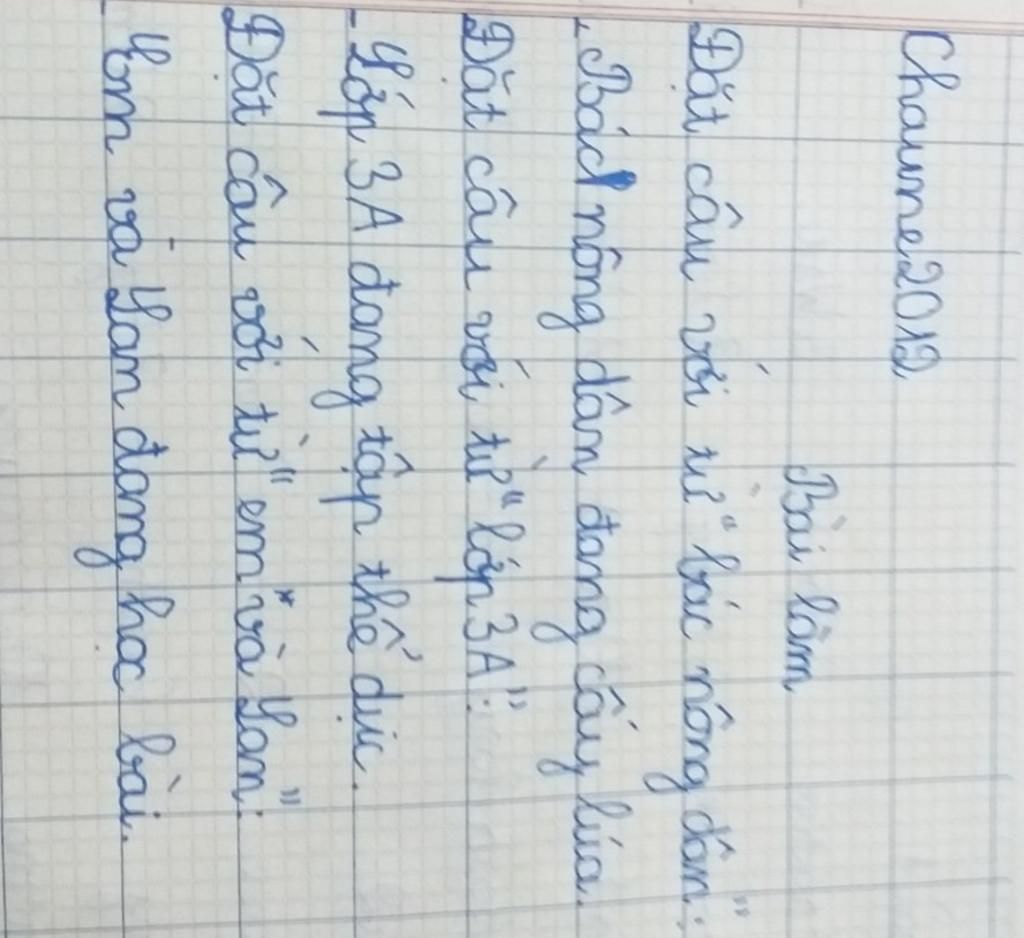 Chaume2012
Bài làm
Đặt câu với từ "bác nông dân":
- Bác nông dân đang cấy lúa.
Đặt câu với từ "lớp 3A":
- Lớp 3A đang tập thể dục.
Đặt câu với từ "em và Lan":
- Em và Lan đang học bài.